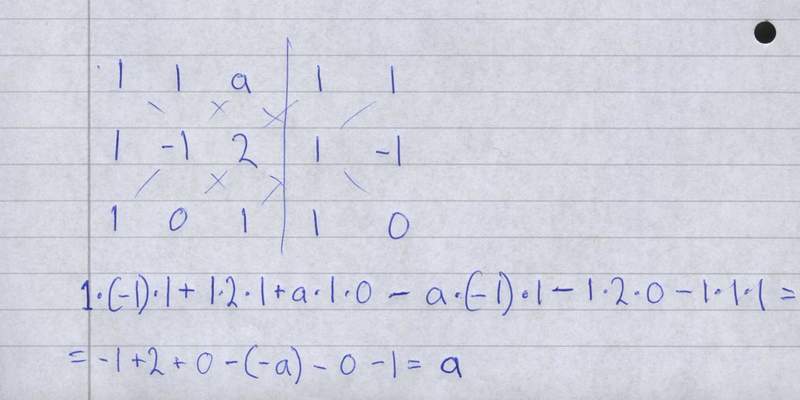 1 1 a | 1 1
1 -1 2 | 1 -1
1 0 1 | 1 0
1·(-1)·1+1·2·1+a·1·0 - a·(-1)·1 - 1·2·0 - 1·1·1 =
= -1+2+0-(-a)-0-1= a